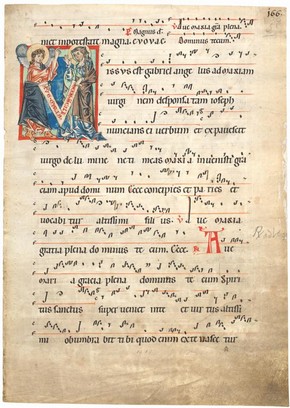 166
Magnus d. Ave maria gra plena.
niet in potestate magna. evovae Dominus tecum.
issus est gabriel ange lus ad mariam
virgi nem desponsatam ioseph
nuncians ei verbum et expavescit
virgo de lu mine ne ti meas maria invenisti gra
ciam apud domi num Ecce concipies et pa ries et
vocabi tur altissimi fili us. V A ve maria
gratia plena do minus te cum. Ecce. A ve
mari a gracia plena dominus te cum spiri
tus sanctus super veniet in te et vir tus altissi
mi obumbra bit ti bi quod enim ex te nasce tur